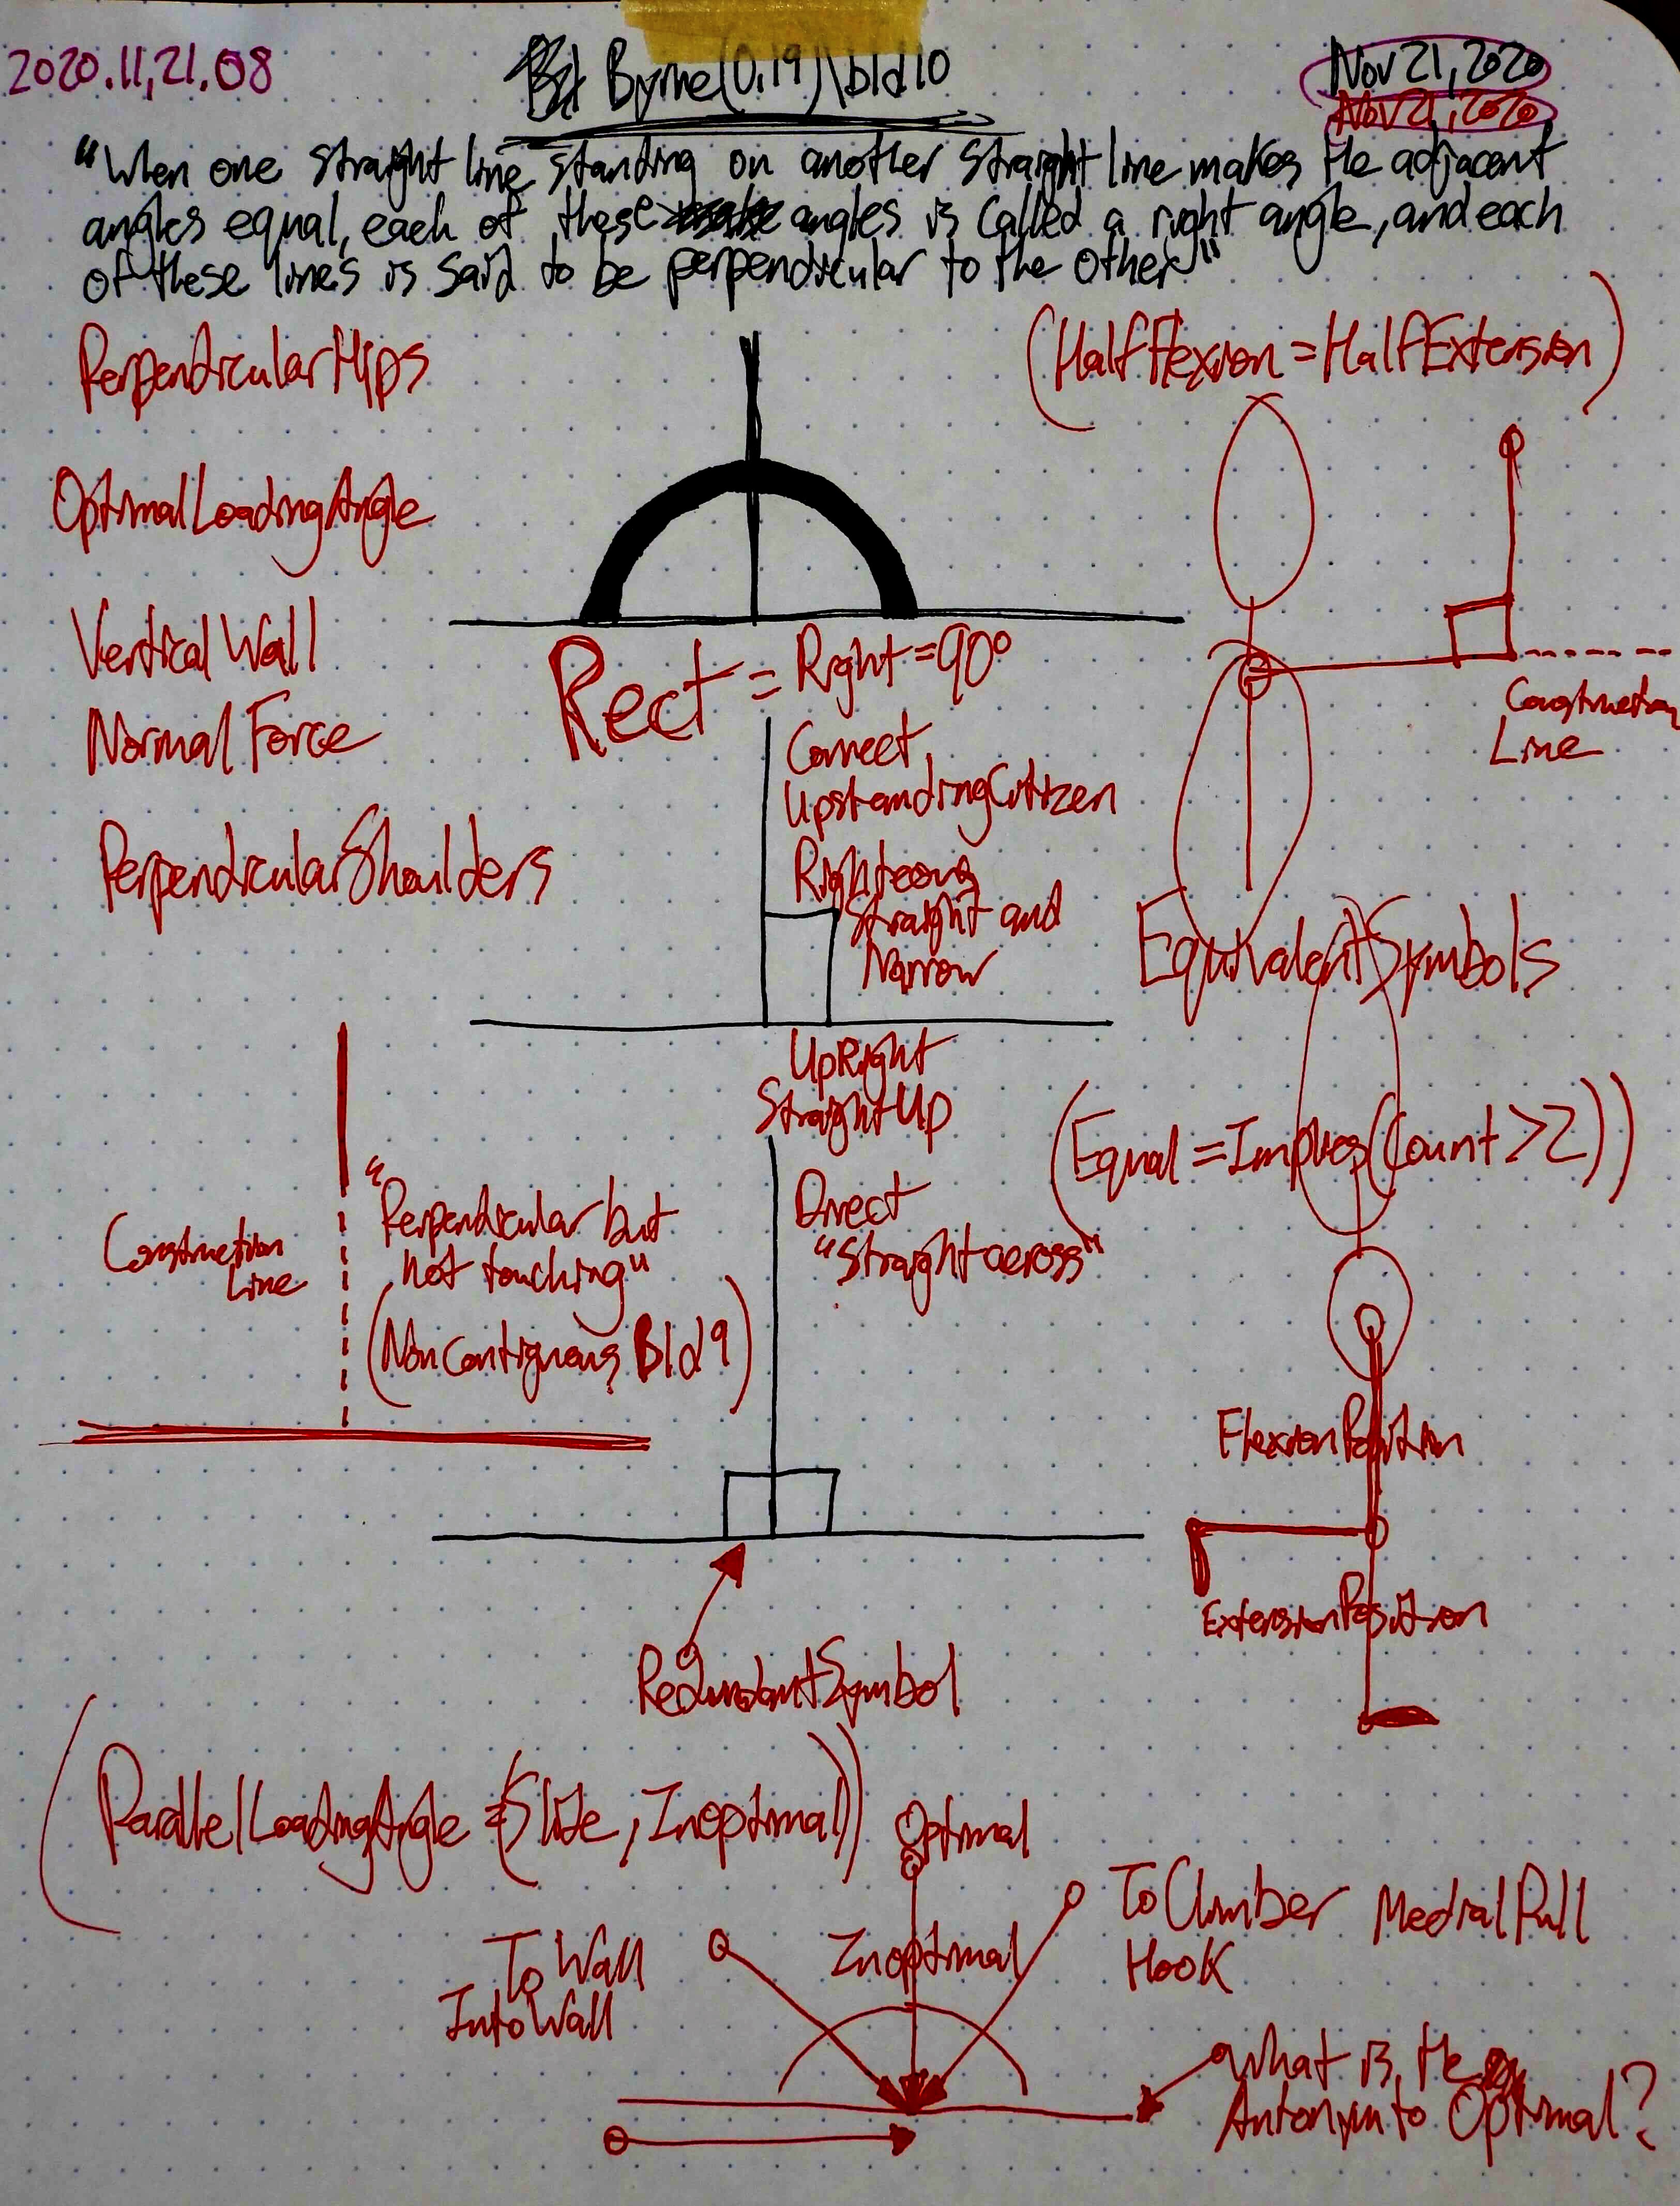 2020.11,21.08
Byrne(0.19)\bld10
Nov 21, 2020
Nov 21, 2020
"When one straight line standing on another straight line makes the adjacent
angles equal, each of these angles is called a right angle, and each
of these lines is said to be perpendicular to the other"
PerpendicularHips
(HalfFlexion = HalfExtension)
OptimalLoadingAngle
Vertical Wall
Rect = Right = 90°
Normal Force
Construction
Line
Correct
UpstandingCitizen
PerpendicularShoulders
Righteous
Straight and
Narrow
EquivalentSymbols
UpRight
StraightUp
(Equal = Implies(Count > 2))
"Perpendicular but
not touching"
(NonContiguous Bld9)
Construction
Line
Direct
"Straight across"
FlexionPosition
ExtensionPosition
RedundantSymbol
(ParallelLoadingAngle = (Slide, Inoptimal))
Optimal
To Wall
Into Wall
Inoptimal
To Climber
Hook
Medial Pull
What is the
Antonym to Optimal?